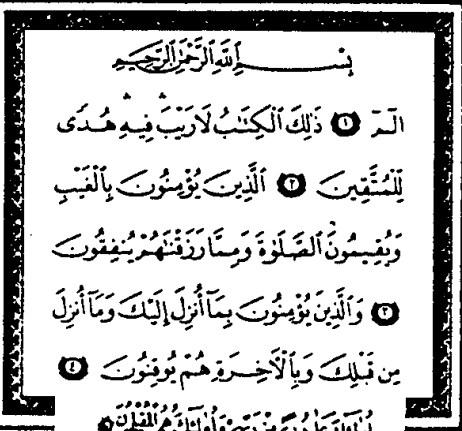 بِسْمِ ٱللَّهِ ٱلرَّحْمَٰنِ ٱلرَّحِيمِ
الٓمٓ ١ ذَٰلِكَ ٱلْكِتَٰبُ لَا رَيْبَ فِيهِ هُدًى
لِّلْمُتَّقِينَ ٢ ٱلَّذِينَ يُؤْمِنُونَ بِٱلْغَيْبِ
وَيُقِيمُونَ ٱلصَّلَوٰةَ وَمِمَّا رَزَقْنَٰهُمْ يُنفِقُونَ
٣ وَٱلَّذِينَ يُؤْمِنُونَ بِمَآ أُنزِلَ إِلَيْكَ وَمَآ أُنزِلَ
مِن قَبْلِكَ وَبِٱلْءَاخِرَةِ هُمْ يُوقِنُونَ ٤
وَأُو۟لَٰٓئِكَ هُمُ ٱلْمُفْلِحُونَ